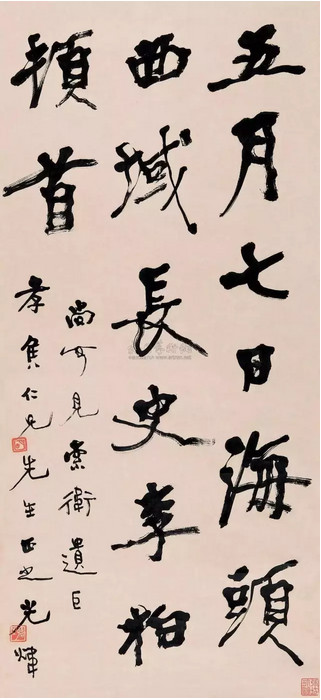 五月七日海頭
西域長史李柏
頓首
尚可見索衛遺巨
孝侯仁兄先生正之光煒